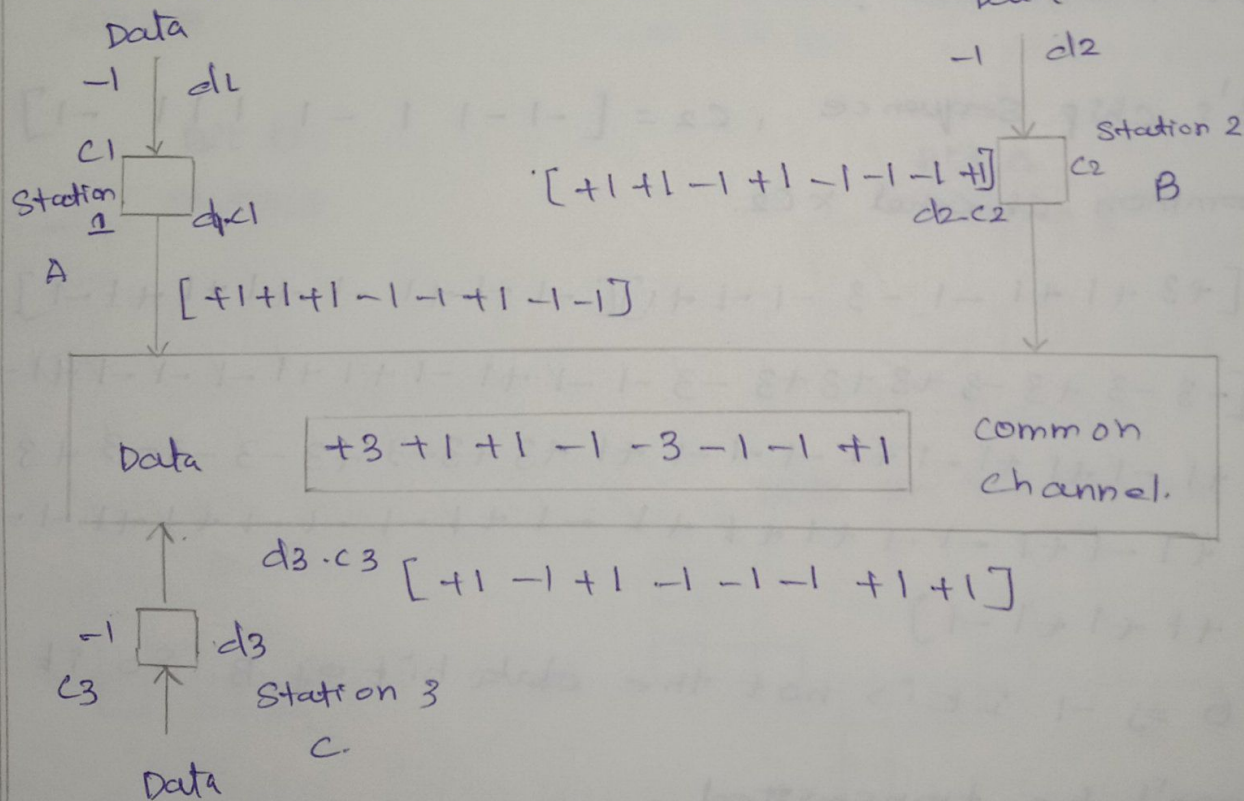 Data
-1 d1
C1
Station
1
d1.c1
A
[+1+1+1-1-1+1-1-1]
-1 d2
Station 2
[+1+1-1+1-1-1-1+1]
C2
B
d2.c2
Data
+3+1+1-1-3-1-1+1
common
channel.
d3.c3 [+1-1+1-1-1-1+1+1]
-1 d3
C3 Station 3
C.
Data